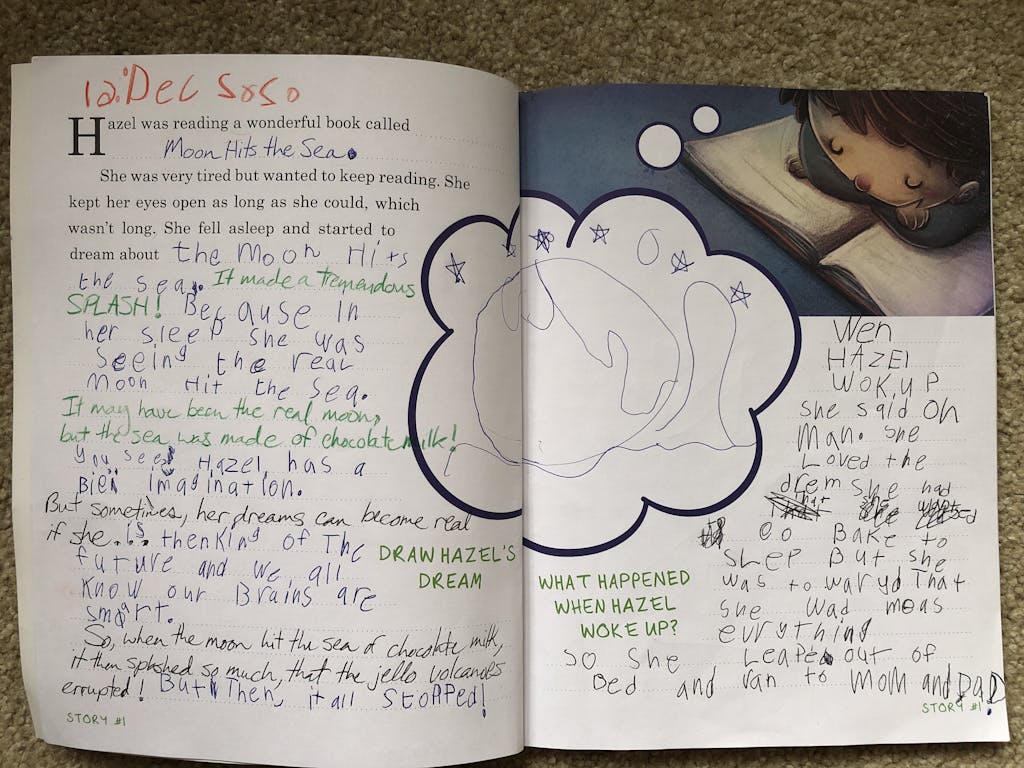 12.Dec 2020
Hazel was reading a wonderful book called
Moon Hits the Sea.
She was very tired but wanted to keep reading. She
kept her eyes open as long as she could, which
wasn't long. She fell asleep and started to
dream about the Moon Hits
the sea. It made a tremendous
SPLASH! Because in
her sleep she was
seeing the real
Moon Hit the sea.
It may have been the real moon,
but the sea was made of chocolate milk!
You see, Hazel has a
imagination.
But sometimes, her dreams can become real
if she is thenking of The
future and we all
know our Brains are
smart.
So, when the moon hit the sea of chocolate milk,
it then splashed so much, that the jello volcanoes
errupted! But Then, it all STOPPED!
STORY #1
DRAW HAZEL'S
DREAM
WHAT HAPPENED
WHEN HAZEL
WOKE UP?
Wen
HAZEl
WOKUP
she said Oh
Man. she
Loved the
drem she had
Go BaKe to
SLEEP But she
was to waryd That
she wad moas
evrything
so she Leaped out of
Bed and ran to MOM and DaD!
STORY #1